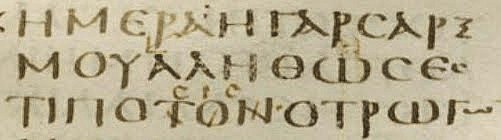 ΗΜΕΡΑΗΓΑΡϹΑΡΞ
ΜΟΥΑΛΗΘΩϹΕϹ
ΤΙΠΟΤΟΝ·ΟΤΡΩΓΩ